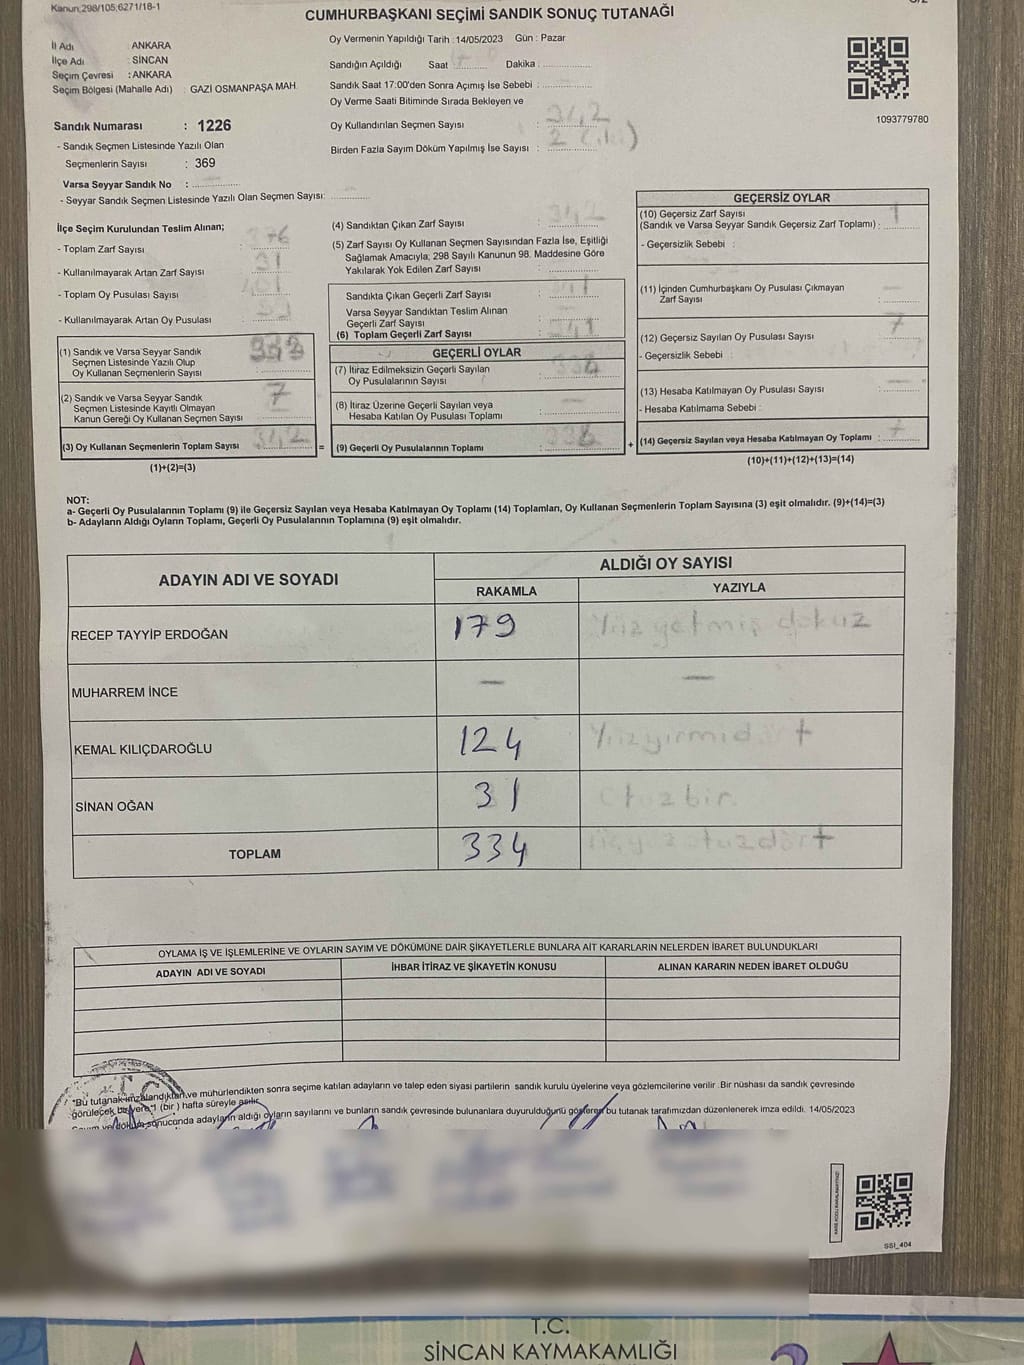 Kanun;298/105;6271/18-1
CUMHURBAŞKANI SEÇİMİ SANDIK SONUÇ TUTANAĞI
İl Adı : ANKARA
İlçe Adı : SİNCAN
Seçim Çevresi : ANKARA
Seçim Bölgesi (Mahalle Adı) : GAZİ OSMANPAŞA MAH.
Sandık Numarası : 1226
- Sandık Seçmen Listesinde Yazılı Olan
Seçmenlerin Sayısı : 369
Varsa Seyyar Sandık No :
- Seyyar Sandık Seçmen Listesinde Yazılı Olan Seçmen Sayısı:
Oy Vermenin Yapıldığı Tarih :14/05/2023 Gün : Pazar
Sandığın Açıldığı Saat Dakika :
Sandık Saat 17:00'den Sonra Açımış İse Sebebi :
Oy Verme Saati Bitiminde Sırada Bekleyen ve
Oy Kullandırılan Seçmen Sayısı : 342
Birden Fazla Sayım Döküm Yapılmış İse Sayısı : 2 (iki)
1093779780
İlçe Seçim Kurulundan Teslim Alınan;
- Toplam Zarf Sayısı : 376
- Kullanılmayarak Artan Zarf Sayısı : 31
- Toplam Oy Pusulası Sayısı : 401
- Kullanılmayarak Artan Oy Pusulası :
(1) Sandık ve Varsa Seyyar Sandık
Seçmen Listesinde Yazılı Olup
Oy Kullanan Seçmenlerin Sayısı :
(2) Sandık ve Varsa Seyyar Sandık
Seçmen Listesinde Kayıtlı Olmayan
Kanun Gereği Oy Kullanan Seçmen Sayısı : 7
(3) Oy Kullanan Seçmenlerin Toplam Sayısı : 342
(1)+(2)=(3)
(4) Sandıktan Çıkan Zarf Sayısı : 342
(5) Zarf Sayısı Oy Kullanan Seçmen Sayısından Fazla İse, Eşitliği
Sağlamak Amacıyla; 298 Sayılı Kanunun 98. Maddesine Göre
Yakılarak Yok Edilen Zarf Sayısı :
Sandıkta Çıkan Geçerli Zarf Sayısı : 341
Varsa Seyyar Sandıktan Teslim Alınan
Geçerli Zarf Sayısı :
(6) Toplam Geçerli Zarf Sayısı : 341
GEÇERLİ OYLAR
(7) İtiraz Edilmeksizin Geçerli Sayılan
Oy Pusulalarının Sayısı :
(8) İtiraz Üzerine Geçerli Sayılan veya
Hesaba Katılan Oy Pusulası Toplamı :
(9) Geçerli Oy Pusulalarının Toplamı :
GEÇERSİZ OYLAR
(10) Geçersiz Zarf Sayısı
(Sandık ve Varsa Seyyar Sandık Geçersiz Zarf Toplamı) : 1
- Geçersizlik Sebebi :
(11) İçinden Cumhurbaşkanı Oy Pusulası Çıkmayan
Zarf Sayısı :
(12) Geçersiz Sayılan Oy Pusulası Sayısı : 7
- Geçersizlik Sebebi :
(13) Hesaba Katılmayan Oy Pusulası Sayısı :
- Hesaba Katılmama Sebebi :
(14) Geçersiz Sayılan veya Hesaba Katılmayan Oy Toplamı :
(10)+(11)+(12)+(13)=(14)
NOT:
a- Geçerli Oy Pusulalarının Toplamı (9) ile Geçersiz Sayılan veya Hesaba Katılmayan Oy Toplamı (14) Toplamları, Oy Kullanan Seçmenlerin Toplam Sayısına (3) eşit olmalıdır. (9)+(14)=(3)
b- Adayların Aldığı Oyların Toplamı, Geçerli Oy Pusulalarının Toplamına (9) eşit olmalıdır.
ADAYIN ADI VE SOYADI
ALDIĞI OY SAYISI
RAKAMLA YAZIYLA
RECEP TAYYİP ERDOĞAN 179 Yüz yetmiş dokuz
MUHARREM İNCE — —
KEMAL KILIÇDAROĞLU 124 Yüzyirmidört
SİNAN OĞAN 31 otuzbir
TOPLAM 334 üçyüzotuzdört
OYLAMA İŞ VE İŞLEMLERİNE VE OYLARIN SAYIM VE DÖKÜMÜNE DAİR ŞİKAYETLERLE BUNLARA AİT KARARLARIN NELERDEN İBARET BULUNDUKLARI
ADAYIN ADI VE SOYADI İHBAR İTİRAZ VE ŞİKAYETİN KONUSU ALINAN KARARIN NEDEN İBARET OLDUĞU
"Bu tutanak imzalandıktan ve mühürlendikten sonra seçime katılan adayların ve talep eden siyasi partilerin sandık kurulu üyelerine veya gözlemcilerine verilir .Bir nüshası da sandık çevresinde
görülecek bir yere 1 (bir ) hafta süreyle asılır.
Sayım ve döküm sonucunda adayların aldığı oyların sayılarını ve bunların sandık çevresinde bulunanlara duyurulduğunu gösteren bu tutanak tarafımızdan düzenlenerek imza edildi. 14/05/2023
SSI_404
T.C.
SİNCAN KAYMAKAMLIĞI